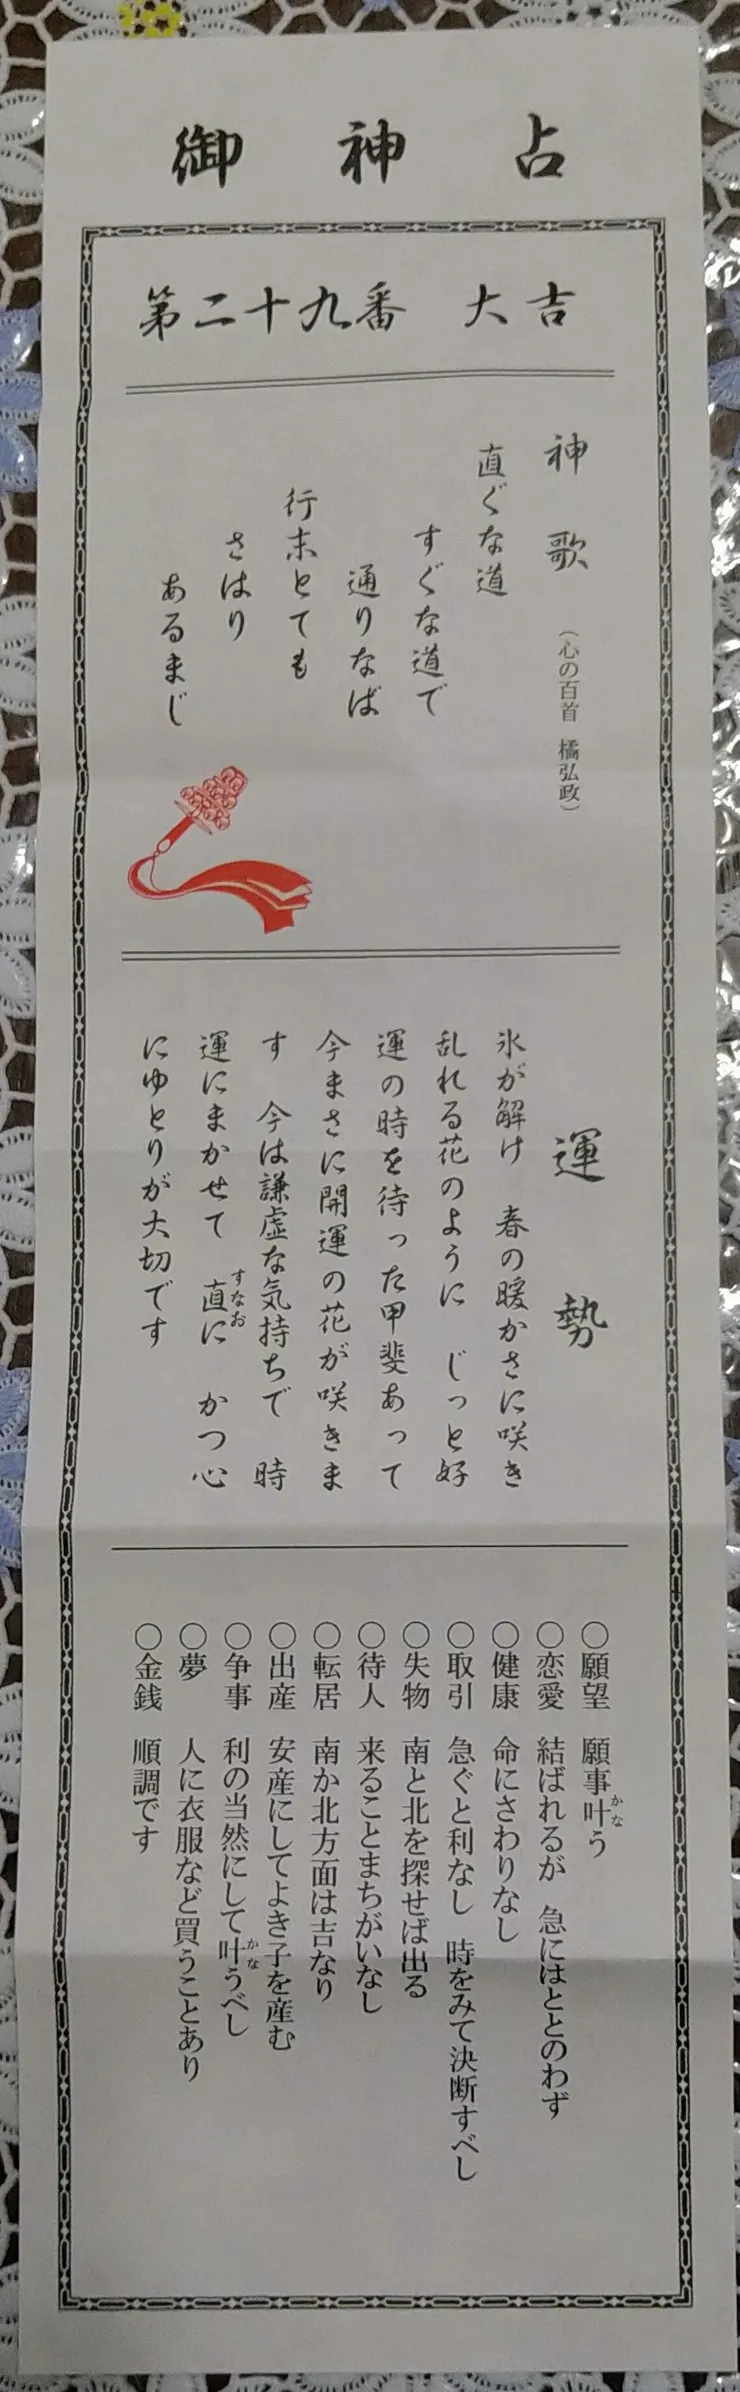 御神占
第二十九番 大吉
神歌 (心の百首 橘弘政)
直ぐな道
すぐな道で
通りなば
行末とても
さはり
あるまじ
運勢
氷が解け 春の暖かさに咲き
乱れる花のように じっと好
運の時を待った甲斐あって
今まさに開運の花が咲きま
す 今は謙虚な気持ちで 時
運にまかせて 直に かつ心
すなお
にゆとりが大切です
○願望 願事叶う
かな
○恋愛 結ばれるが 急にはととのわず
○健康 命にさわりなし
○取引 急ぐと利なし 時をみて決断すべし
○失物 南と北を探せば出る
○待人 来ることまちがいなし
○転居 南か北方面は吉なり
○出産 安産にしてよき子を産む
○争事 利の当然にして叶うべし
かな
○夢 人に衣服など買うことあり
○金銭 順調です